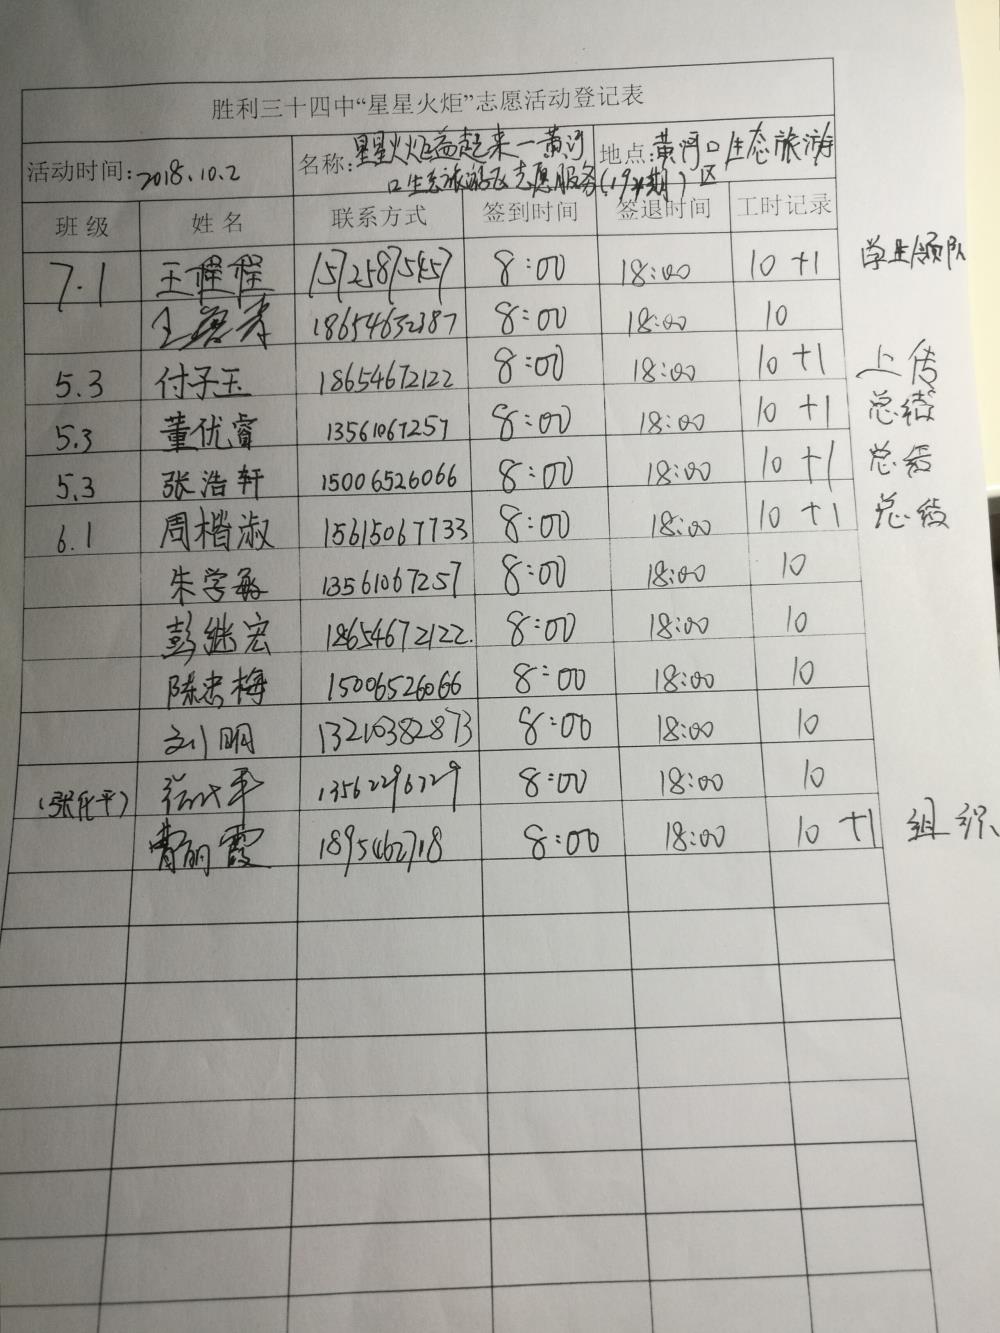 胜利三十四中“星星火炬”志愿活动登记表
活动时间:2018.10.2 名称:星星火炬益起来—黄河口生态旅游区志愿服务(19#期) 地点:黄河口生态旅游区
班级 姓名 联系方式 签到时间 签退时间 工时记录
7.1 王程程 15725875457 8:00 18:00 10+1 学生领队
18654632387 8:00 18:00 10
5.3 付子玉 18654672122 8:00 18:00 10+1 上传
5.3 董优睿 13561067257 8:00 18:00 10+1 总结
5.3 张浩轩 15006526066 8:00 18:00 10+1 总结
6.1 周楷淑 15615067733 8:00 18:00 10+1 总结
朱学敏 13561067257 8:00 18:00 10
彭继宏 18654672122. 8:00 18:00 10
陈忠梅 15006526066 8:00 18:00 10
刘明 13210382873 8:00 18:00 10
(张化平) 张化平 13562296729 8:00 18:00 10
曹丽霞 8:00 18:00 10+1 组织